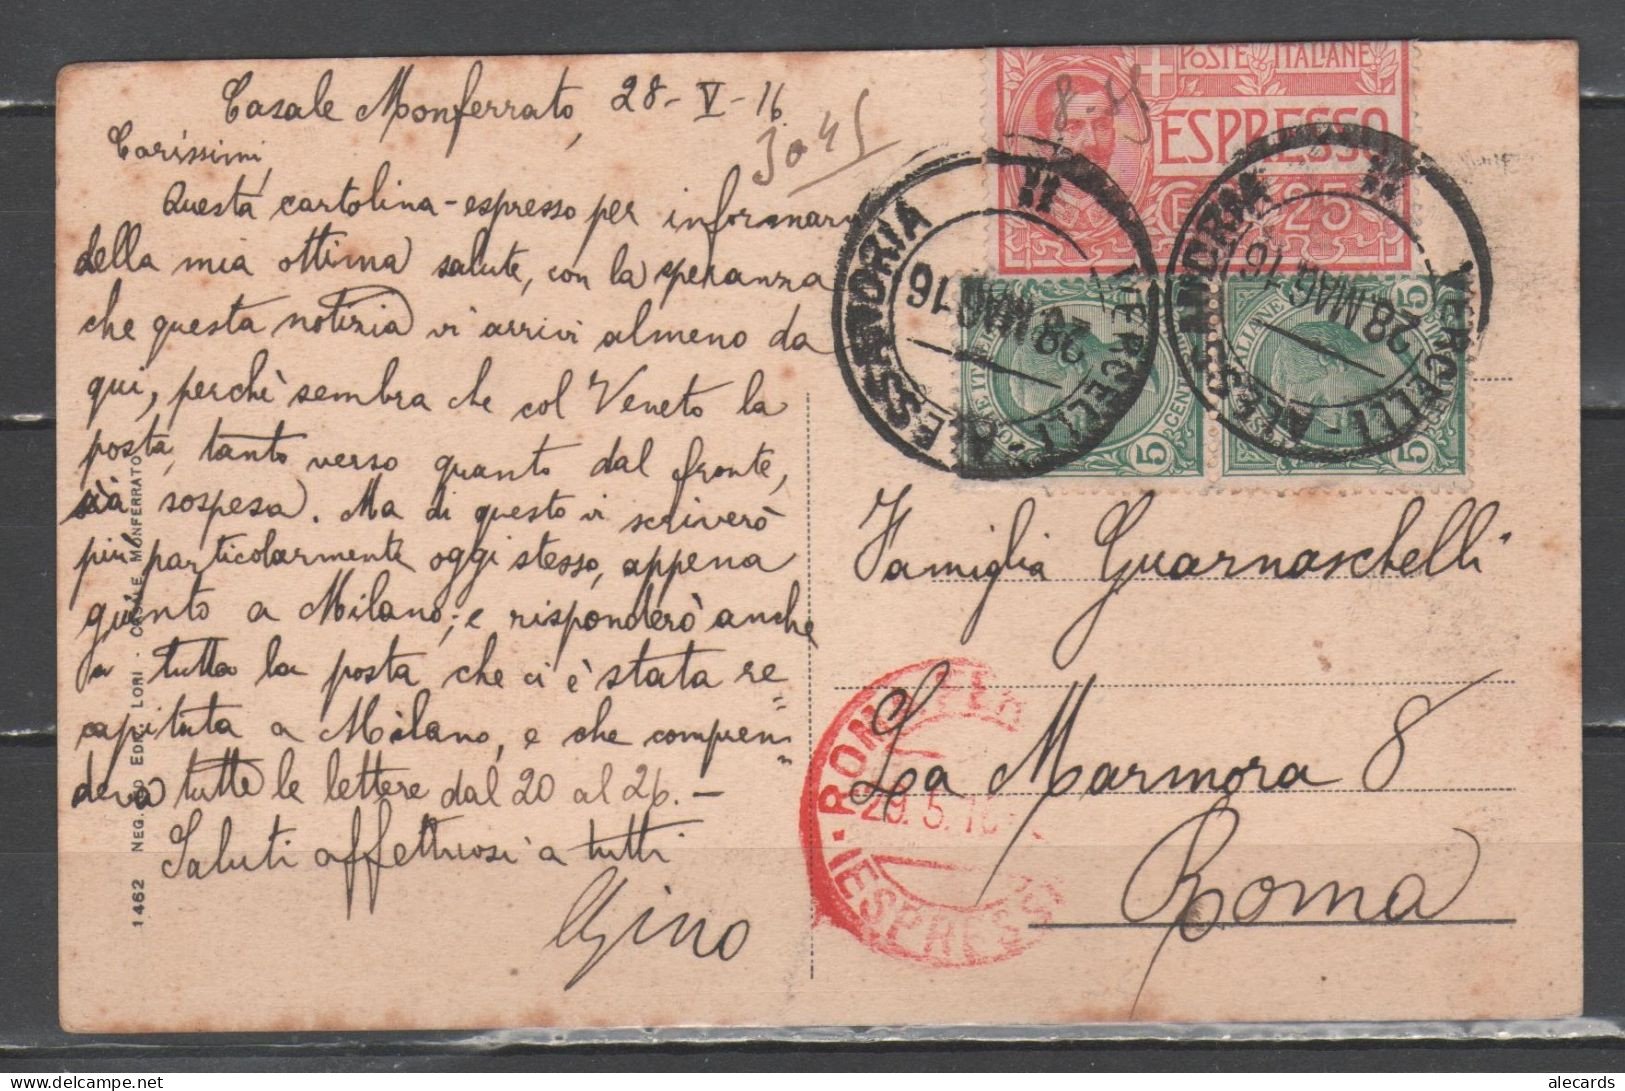 Casale Monferrato, 28-V-16.
3045
Carissimi,
Questa cartolina-espresso per informarvi
della mia ottima salute, con la speranza
che questa notizia vi arrivi almeno da
qui, perchè sembra che col Veneto la
posta, tanto verso quanto dal fronte,
sia sospesa. Ma di questo vi scriverò
più particolarmente oggi stesso, appena
giunto a Milano; e risponderò anche
a tutta la posta che ci è stata re=
capituta a Milano, e che compren=
deva tutte le lettere dal 20 al 26. —
Saluti affettuosi a tutti
Gino
1462 NEG. ED EDIT. LORI - CASALE MONFERRATO
POSTE ITALIANE
ESPRESSO
25
VERCELLI - ALESSANDRIA
28 MAG 16
VERCELLI - ALESSANDRIA
28 MAG 16
POSTE ITALIANE
CENT 5
POSTE ITALIANE
CENT 5
Famiglia Guarnaschelli
La Marmora 8
Roma
ROMA
29.5.16
ESPRESSI
alecards